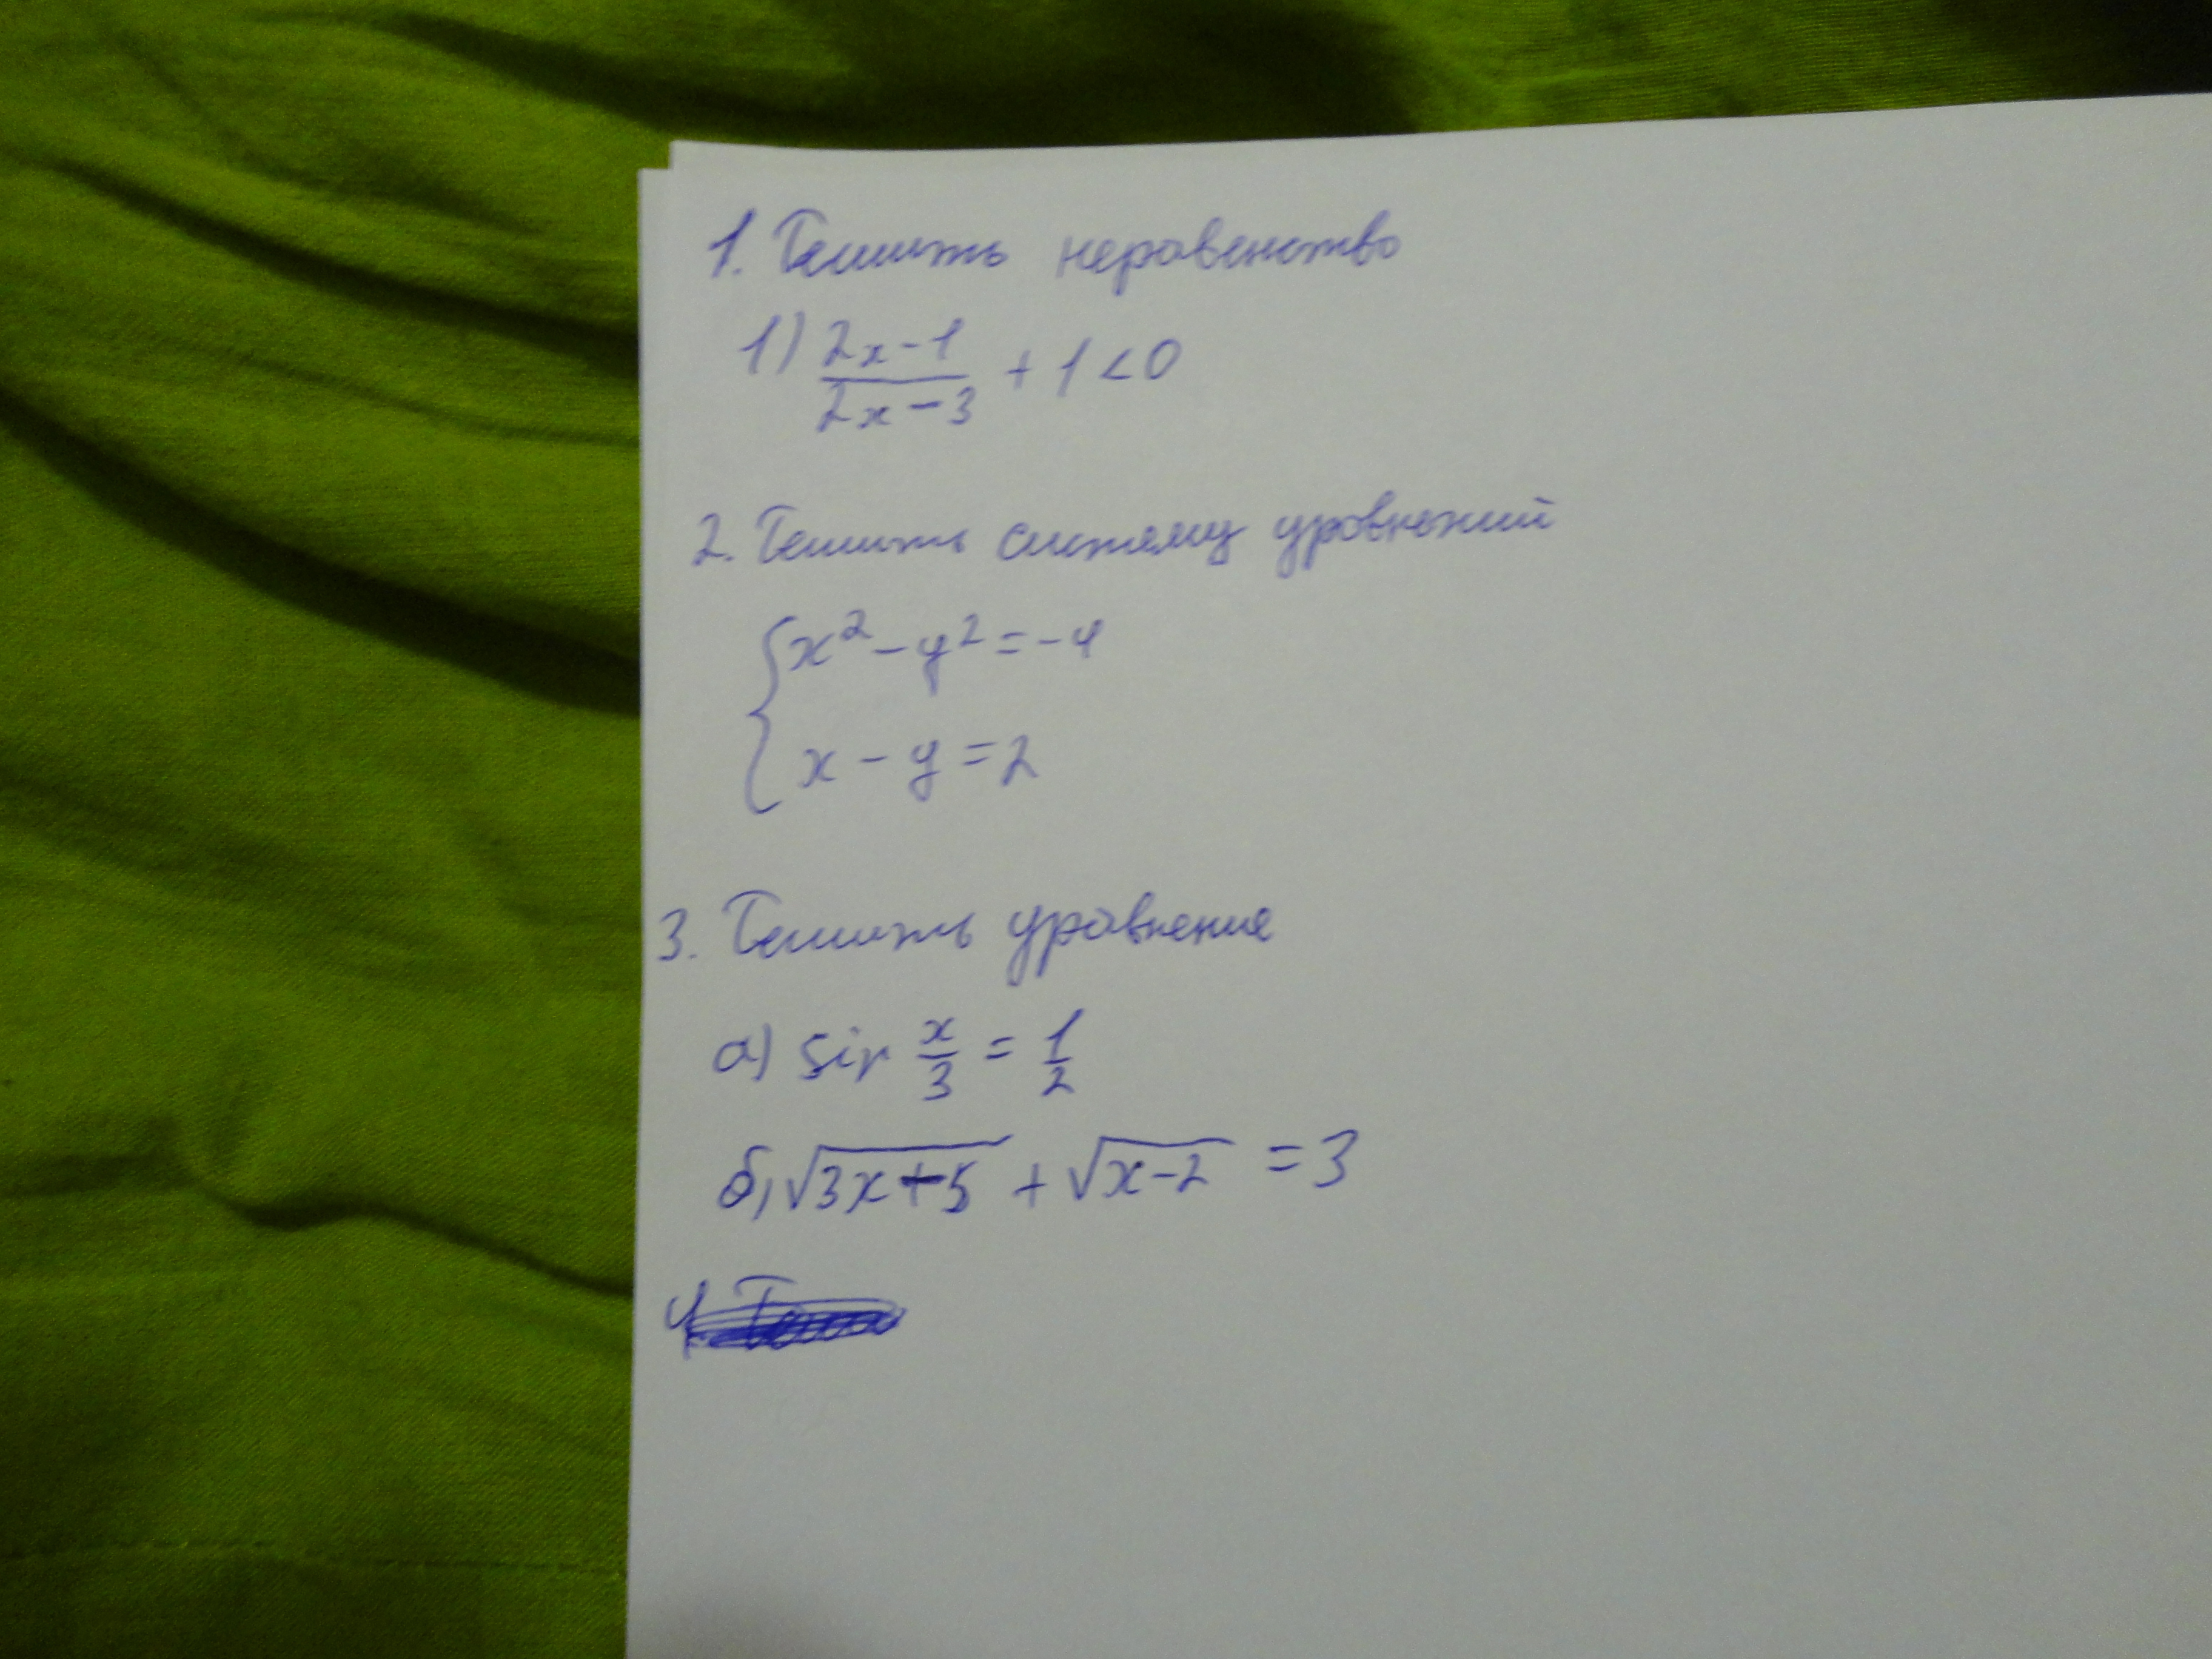 1. Решить неравенство
1) (2x-1)/(2x-3) + 1 < 0
2. Решить систему уравнений
{ x² - y² = -4
x - y = 2
3. Решить уравнения
а) sin x/3 = 1/2
б) √(3x+5) + √(x-2) = 3
4.